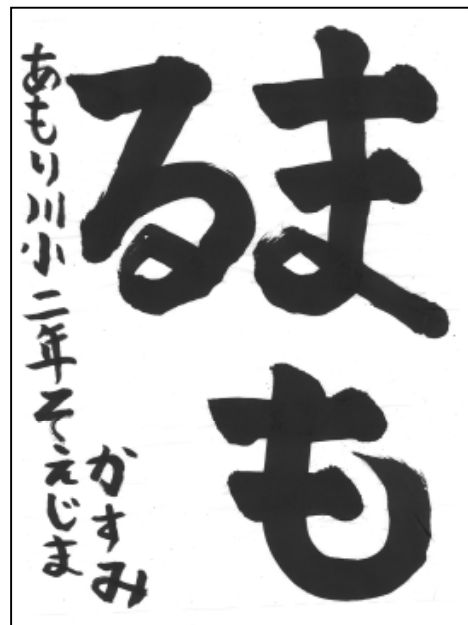 まも
る
あもり川小二年そえじま
かすみ